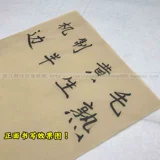 机制黄毛
边半生熟
正面书写效果图！